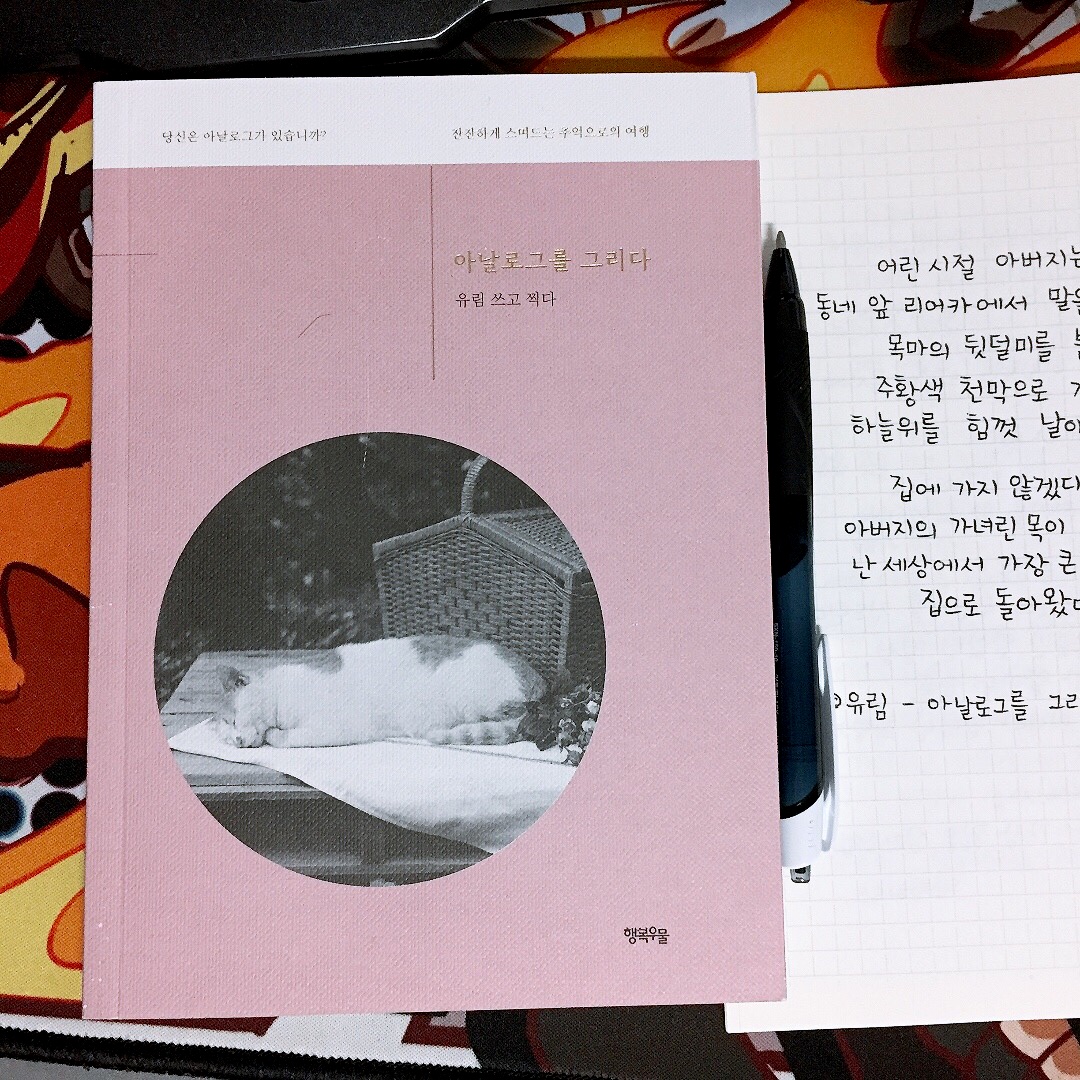 당신은 아날로그가 있습니까?
잔잔하게 스며드는 추억으로의 여행
아날로그를 그리다
유림 쓰고 찍다
행복우물
어린 시절 아버지는
동네 앞 리어카에서 말을
목마의 뒷덜미를
주황색 천막으로
하늘위를 힘껏 날아
집에 가지 않겠다
아버지의 가녀린 목이
난 세상에서 가장 큰
집으로 돌아왔다
@유림 - 아날로그를 그리